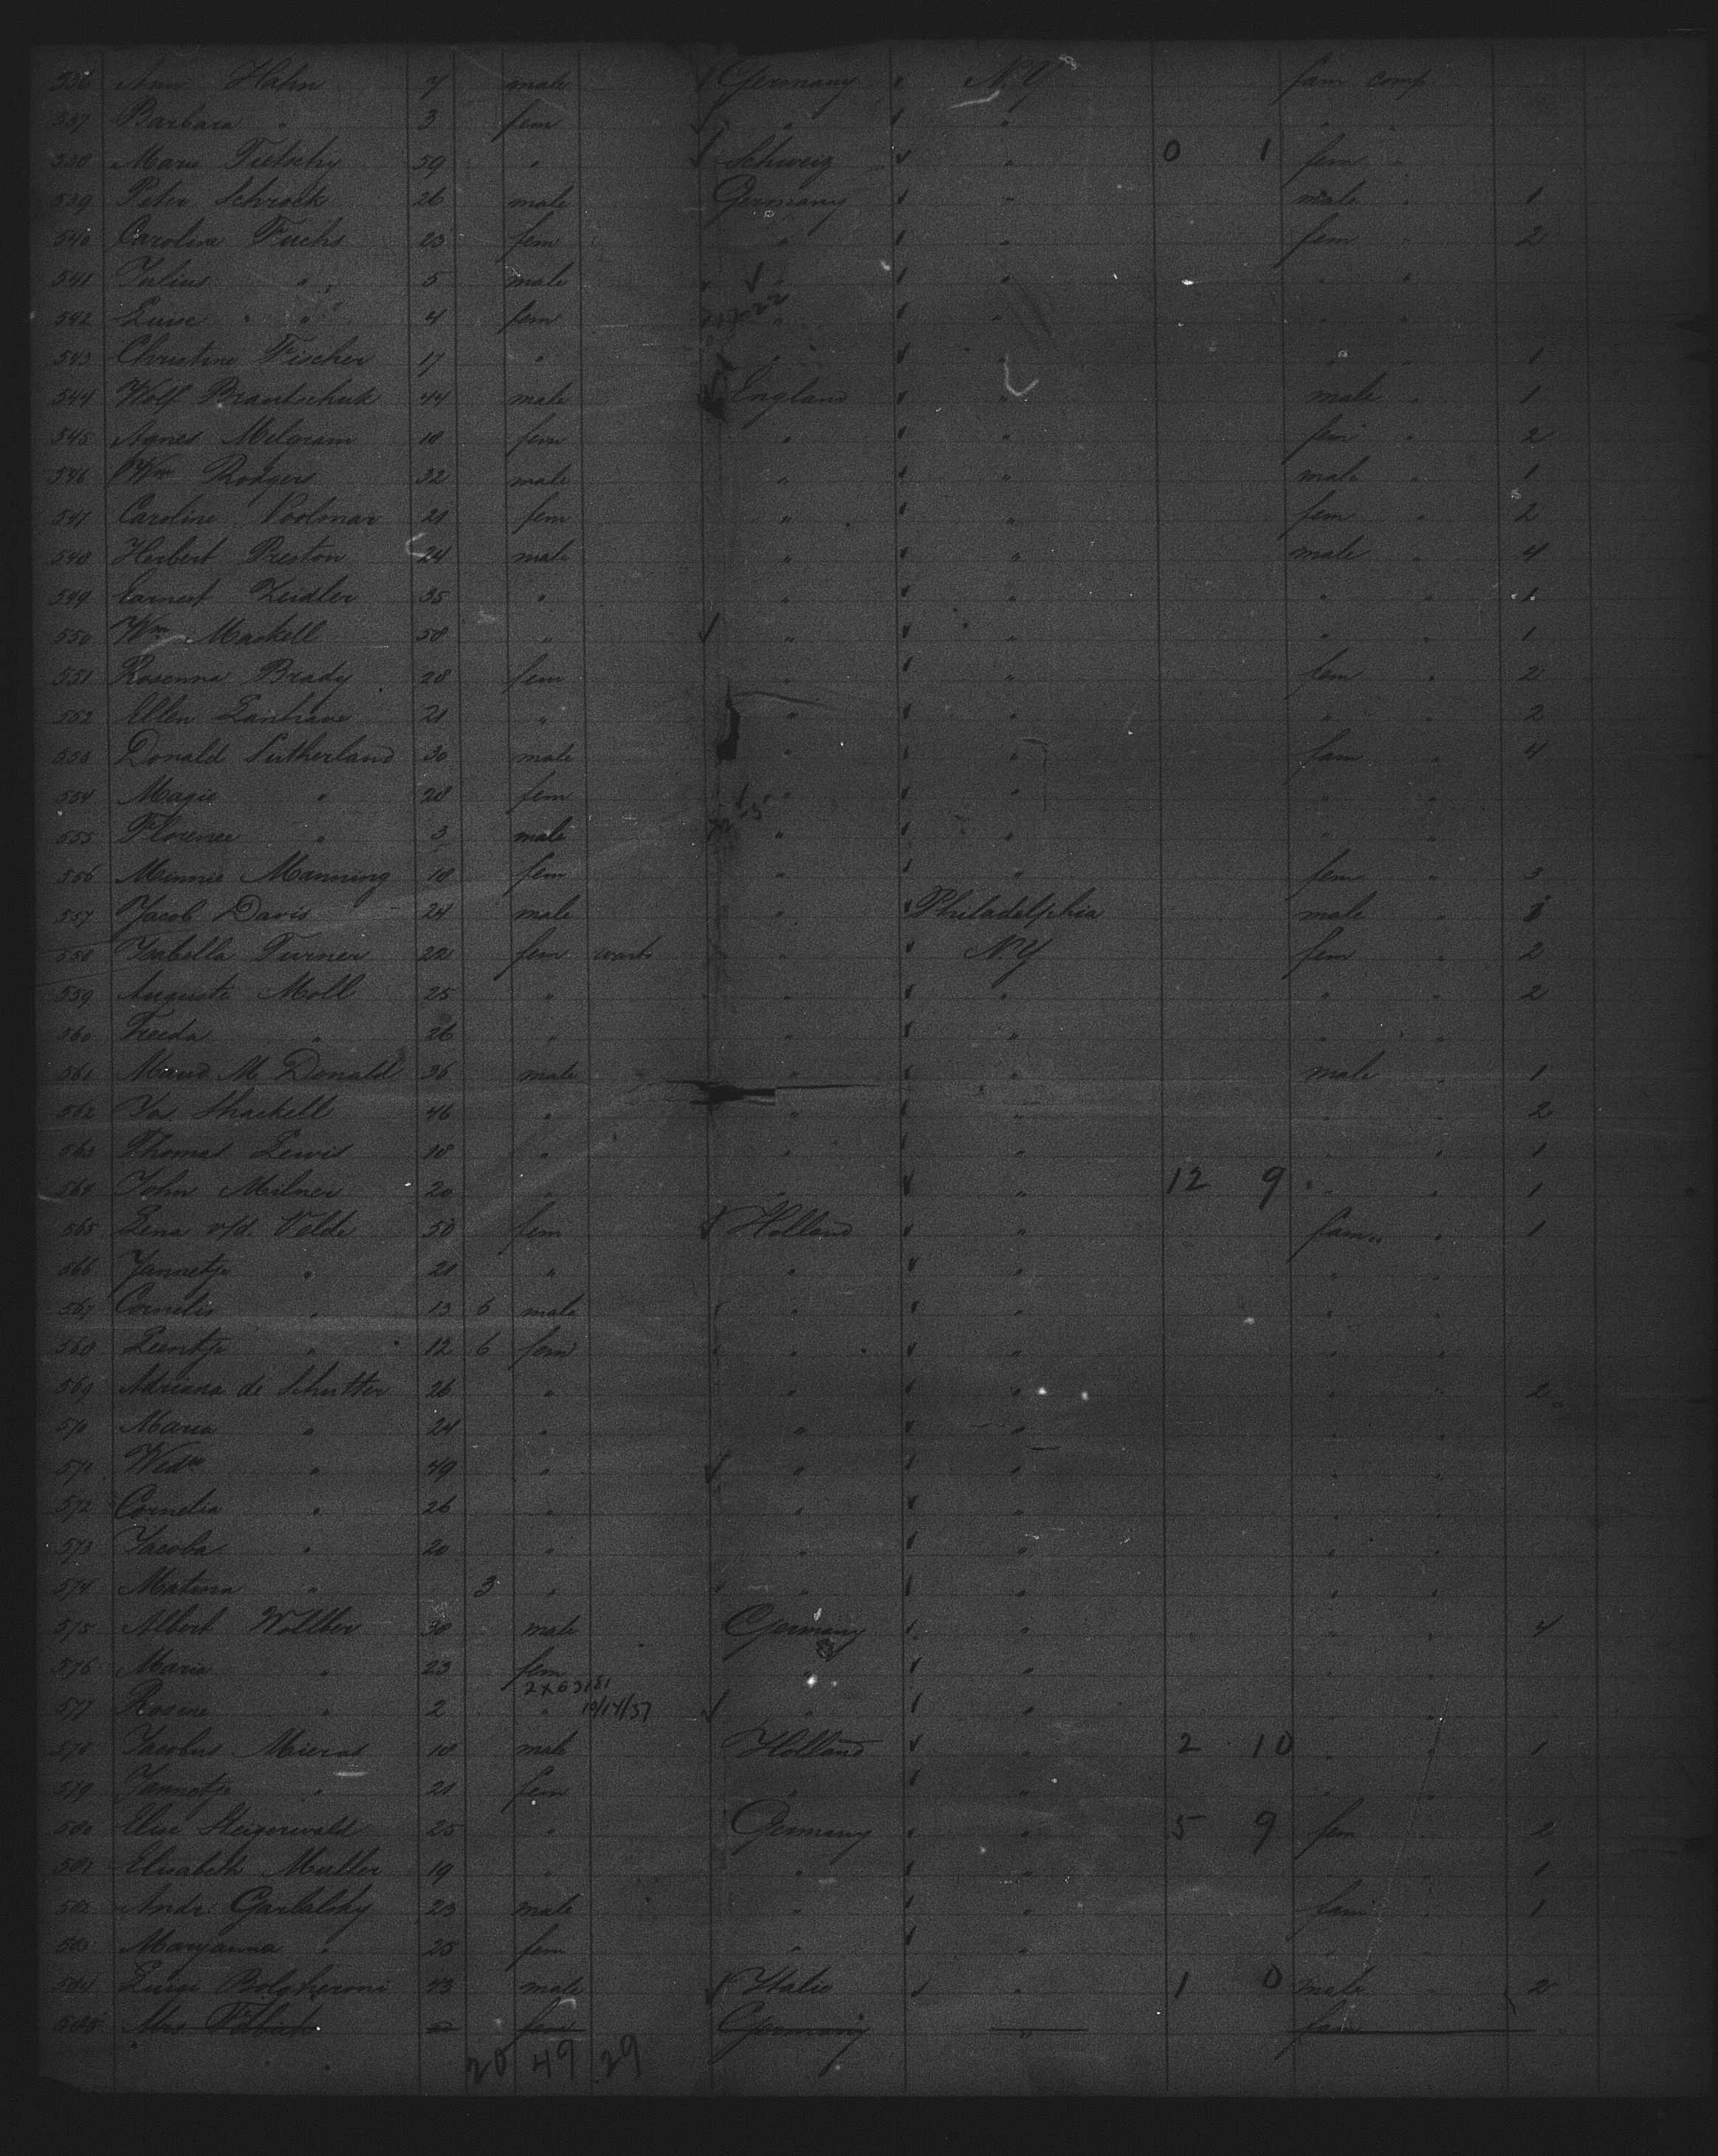 536 Ann Hahn 7 male Germany N.Y fam comp
537 Barbara " 3 fem " " " "
538 Marie Tietschy 59 " Schweiz " 0 1 fem "
539 Peter Schrock 26 male Germany " male " 1
540 Caroline Fuchs 23 fem " " fem " 2
541 Julius " 5 male " " " "
542 Luise " 4 fem " " " "
543 Christine Fischer 17 " " " " " 1
544 Wolf Brantschuk 44 male England " male " 1
545 Agnes Milgram 18 fem " " fem " 2
546 Wm Rodgers 32 male " " male " 1
547 Caroline 21 fem " " fem " 2
548 Herbert Preston 24 male " " male " 4
549 Earnest Zeidler 35 " " " " " 1
550 Wm Maskell 58 " " " " " 1
551 Rosenna Brady 28 fem " " fem " 2
552 Ellen 21 " " " " " 2
553 Donald Sutherland 30 male " " fam " 4
554 Magie " 28 fem " " " "
555 Florence " 3 male " " " "
556 Minnie Manning 18 fem " " fem " 3
557 Jacob Davis 24 male " Philadelphia male "
558 Isabella Turner 22 fem " N.Y fem " 2
559 Auguste Moll 25 " " " " " 2
560 Freeda " 26 " " " " "
561 Maud Mc Donald 36 male " " male " 1
562 Jas. Shackell 46 " " " " " 2
563 Thomas Lewis 18 " " " " " 1
564 John Milner 20 " " " 12 9 " " 1
565 Lena v/d. Velde 50 fem Holland " fam " 1
566 Jannetje " 21 " " " " "
567 Cornelis " 13 6 male " " " "
568 Leentje " 12 6 fem " " " "
569 Adriana de Schutter 26 " " " " " 2
570 Maria " 24 " " " " "
571 Wedw " 49 " " " " "
572 Cornelia " 26 " " " " "
573 Jacoba " 20 " " " " "
574 Matina " 3 " " " " "
575 Albert Wollber 30 male Germany " " " 4
576 Maria " 23 fem " " " "
2 X 63181
577 Rosine " 2 " 10/14/37 " " " "
578 Jacobus Mieras 18 male Holland " 2 10 " " 1
579 Jannetje " 21 fem " " " "
580 Elise Steigerwald 25 " Germany " 5 9 fem " 2
581 Elisabeth Muller 19 " " " " " 1
582 Andr. Garbalsky 23 male " " fam " 1
583 Maryanna " 25 fem " " " "
584 Luigi Bolgheroni 43 male Italie " 1 0 male " 2
585 Mrs fem Germany " fam
20 49 29